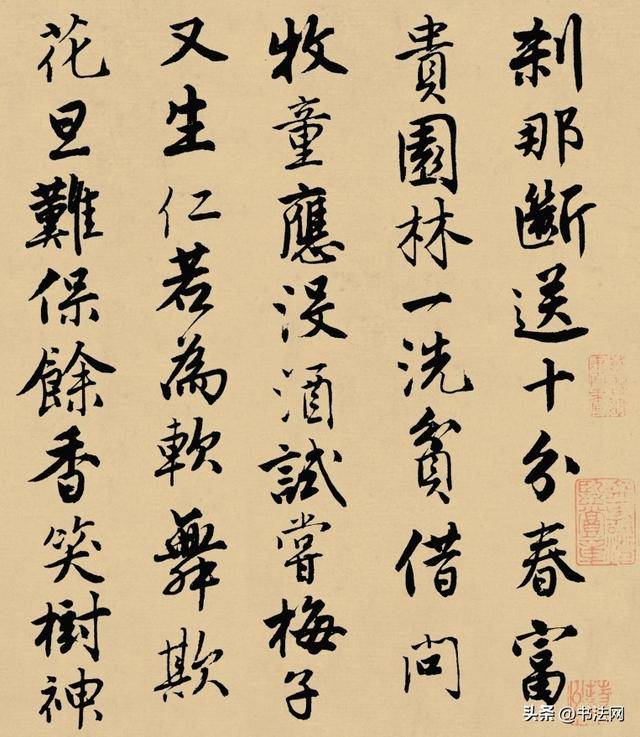 刹那斷送十分春富
貴園林一洗貧借問
牧童應沒酒試嘗梅子
又生仁若為軟舞欺
花旦難保餘香笑樹神
头条 @书法网